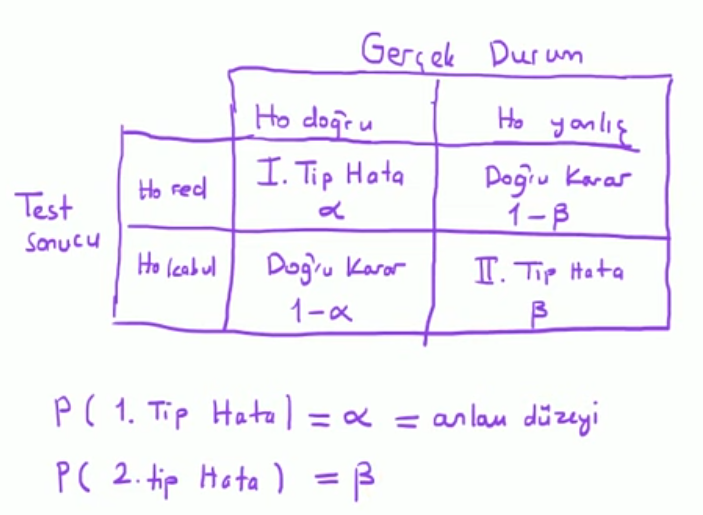 Gerçek Durum
Ho doğru Ho yanlış
Test sonucu
Ho red
I. Tip Hata
α
Doğru Karar
1-β
Ho kabul
Doğru Karar
1-α
II. Tip Hata
β
P( 1. Tip Hata) = α = anlam düzeyi
P( 2. tip Hata ) = β